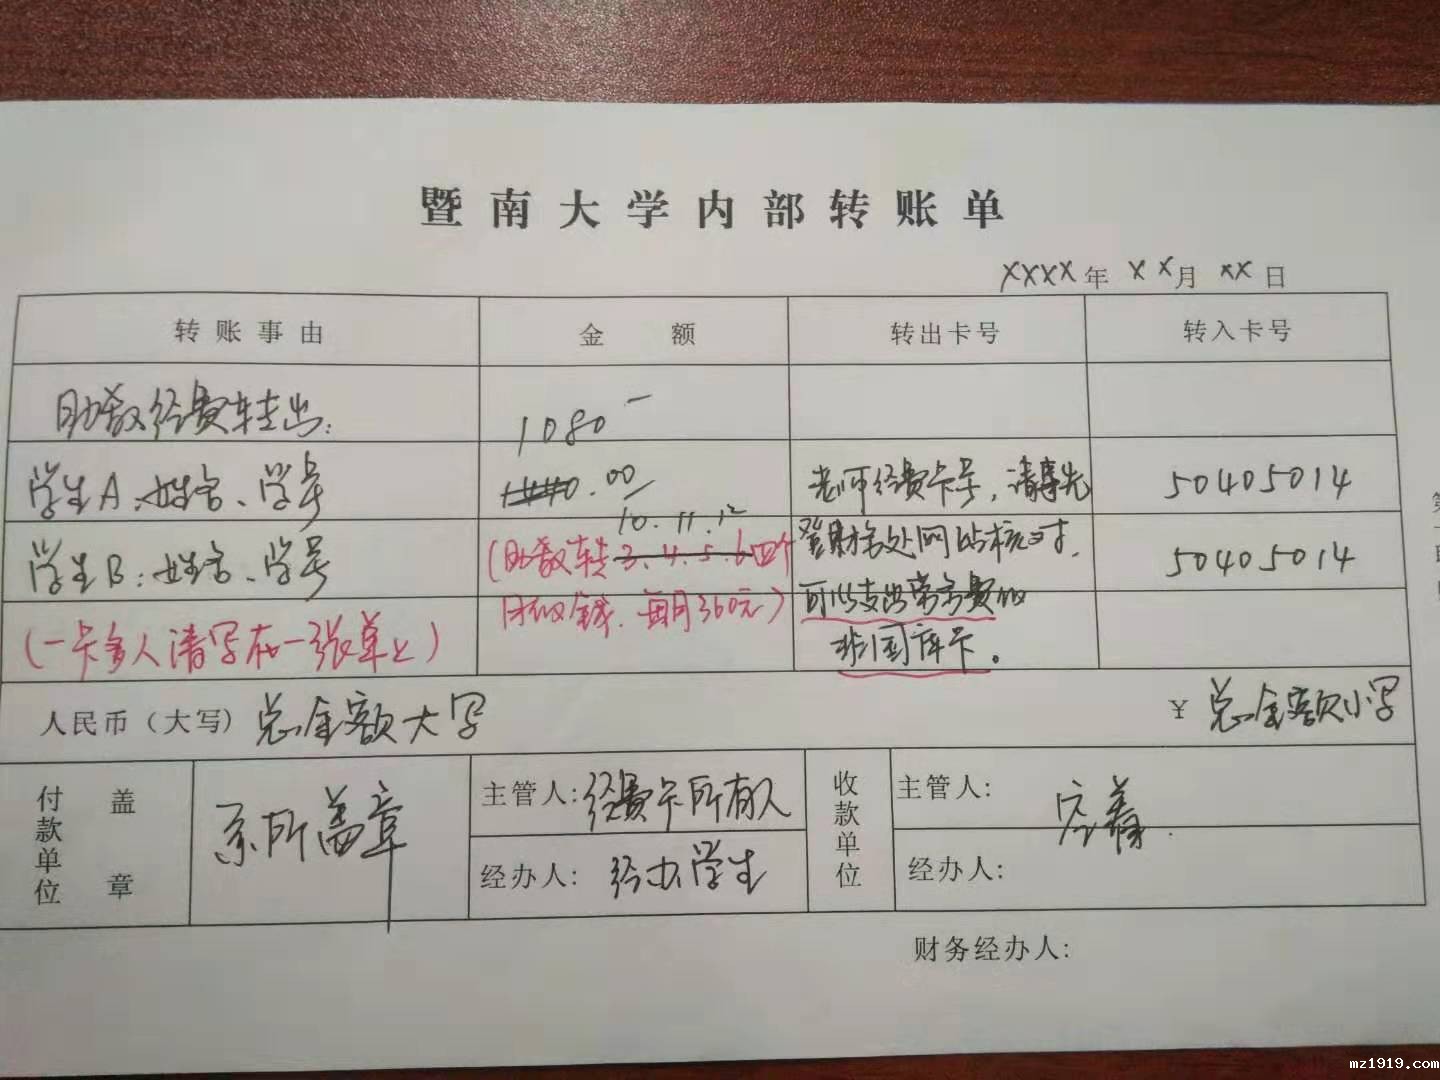 暨南大学内部转账单
XXXX年 XX月 XX日
转账事由 金额 转出卡号 转入卡号
助教经费转出：
1080
学生A、姓名、学号 1440.00 老师经费卡号，请事先 50405014
10.11.12
学生B：姓名、学号 (助教转3.4.5.6四个 登财务处网站核对， 50405014
(一卡多人请写在一张单上) 月的钱，每月360元) 可以支出劳务费的
非国库卡。
人民币（大写) 总金额大写 ¥ 总金额小写
付款单位 盖章 系所盖章 主管人: 经费卡所有人 收款单位 主管人:
经办人: 经办学生 经办人:
财务经办人:
mz1919.com